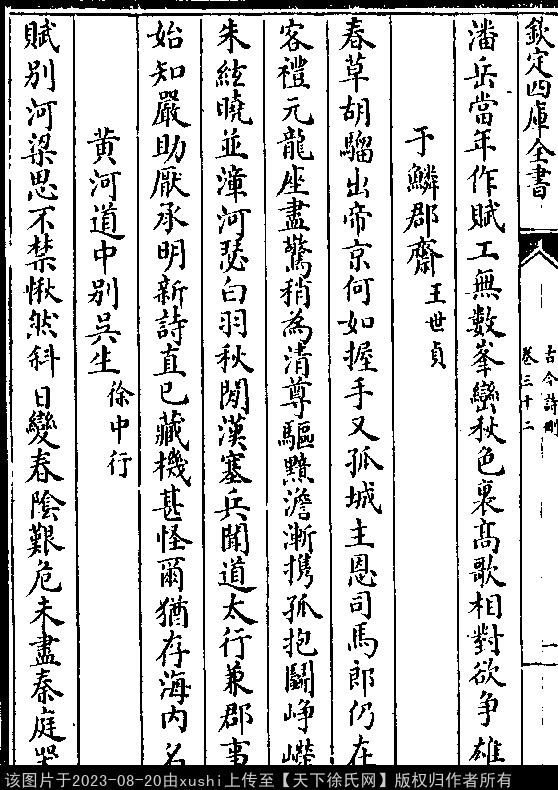 欽定四庫全書
古今詩刪
卷三十二
一
潘岳當年作賦工無數峯巒秋色裏高歌相對欲争雄
于鱗郡齋 王世貞
春草胡騮出帝京何如握手又孤城主恩司馬郎仍在
客禮元龍座盡驚稍為清尊驅黯澹漸携孤抱鬭崢嶸
朱絃曉並漳河瑟白羽秋閒漢塞兵聞道太行兼郡事
始知嚴助厭承明新詩直已藏機甚怪爾猶存海内名
黄河道中别吳生 徐中行
賦别河梁思不禁愀然斜日變春陰艱危未盡秦庭哭
该图片于2023-08-20由xushi上传至【天下徐氏网】版权归作者所有